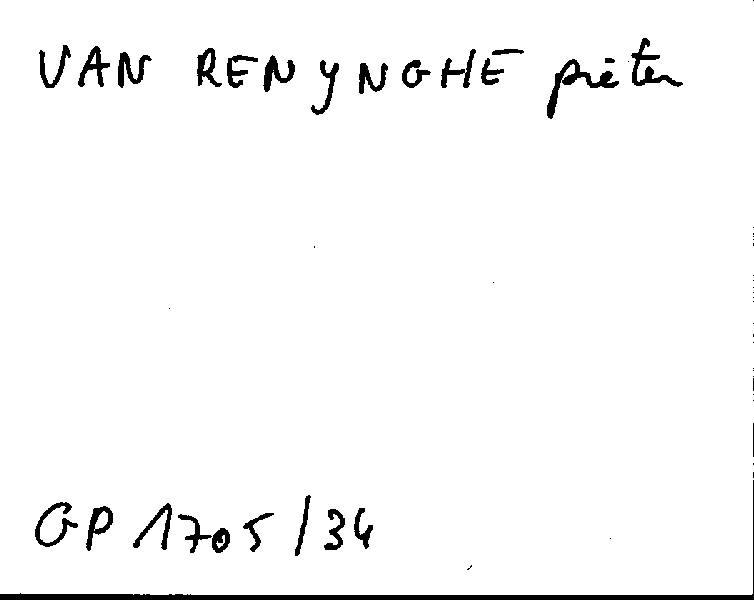 VAN RENYNGHE pieter
GP 1705/34